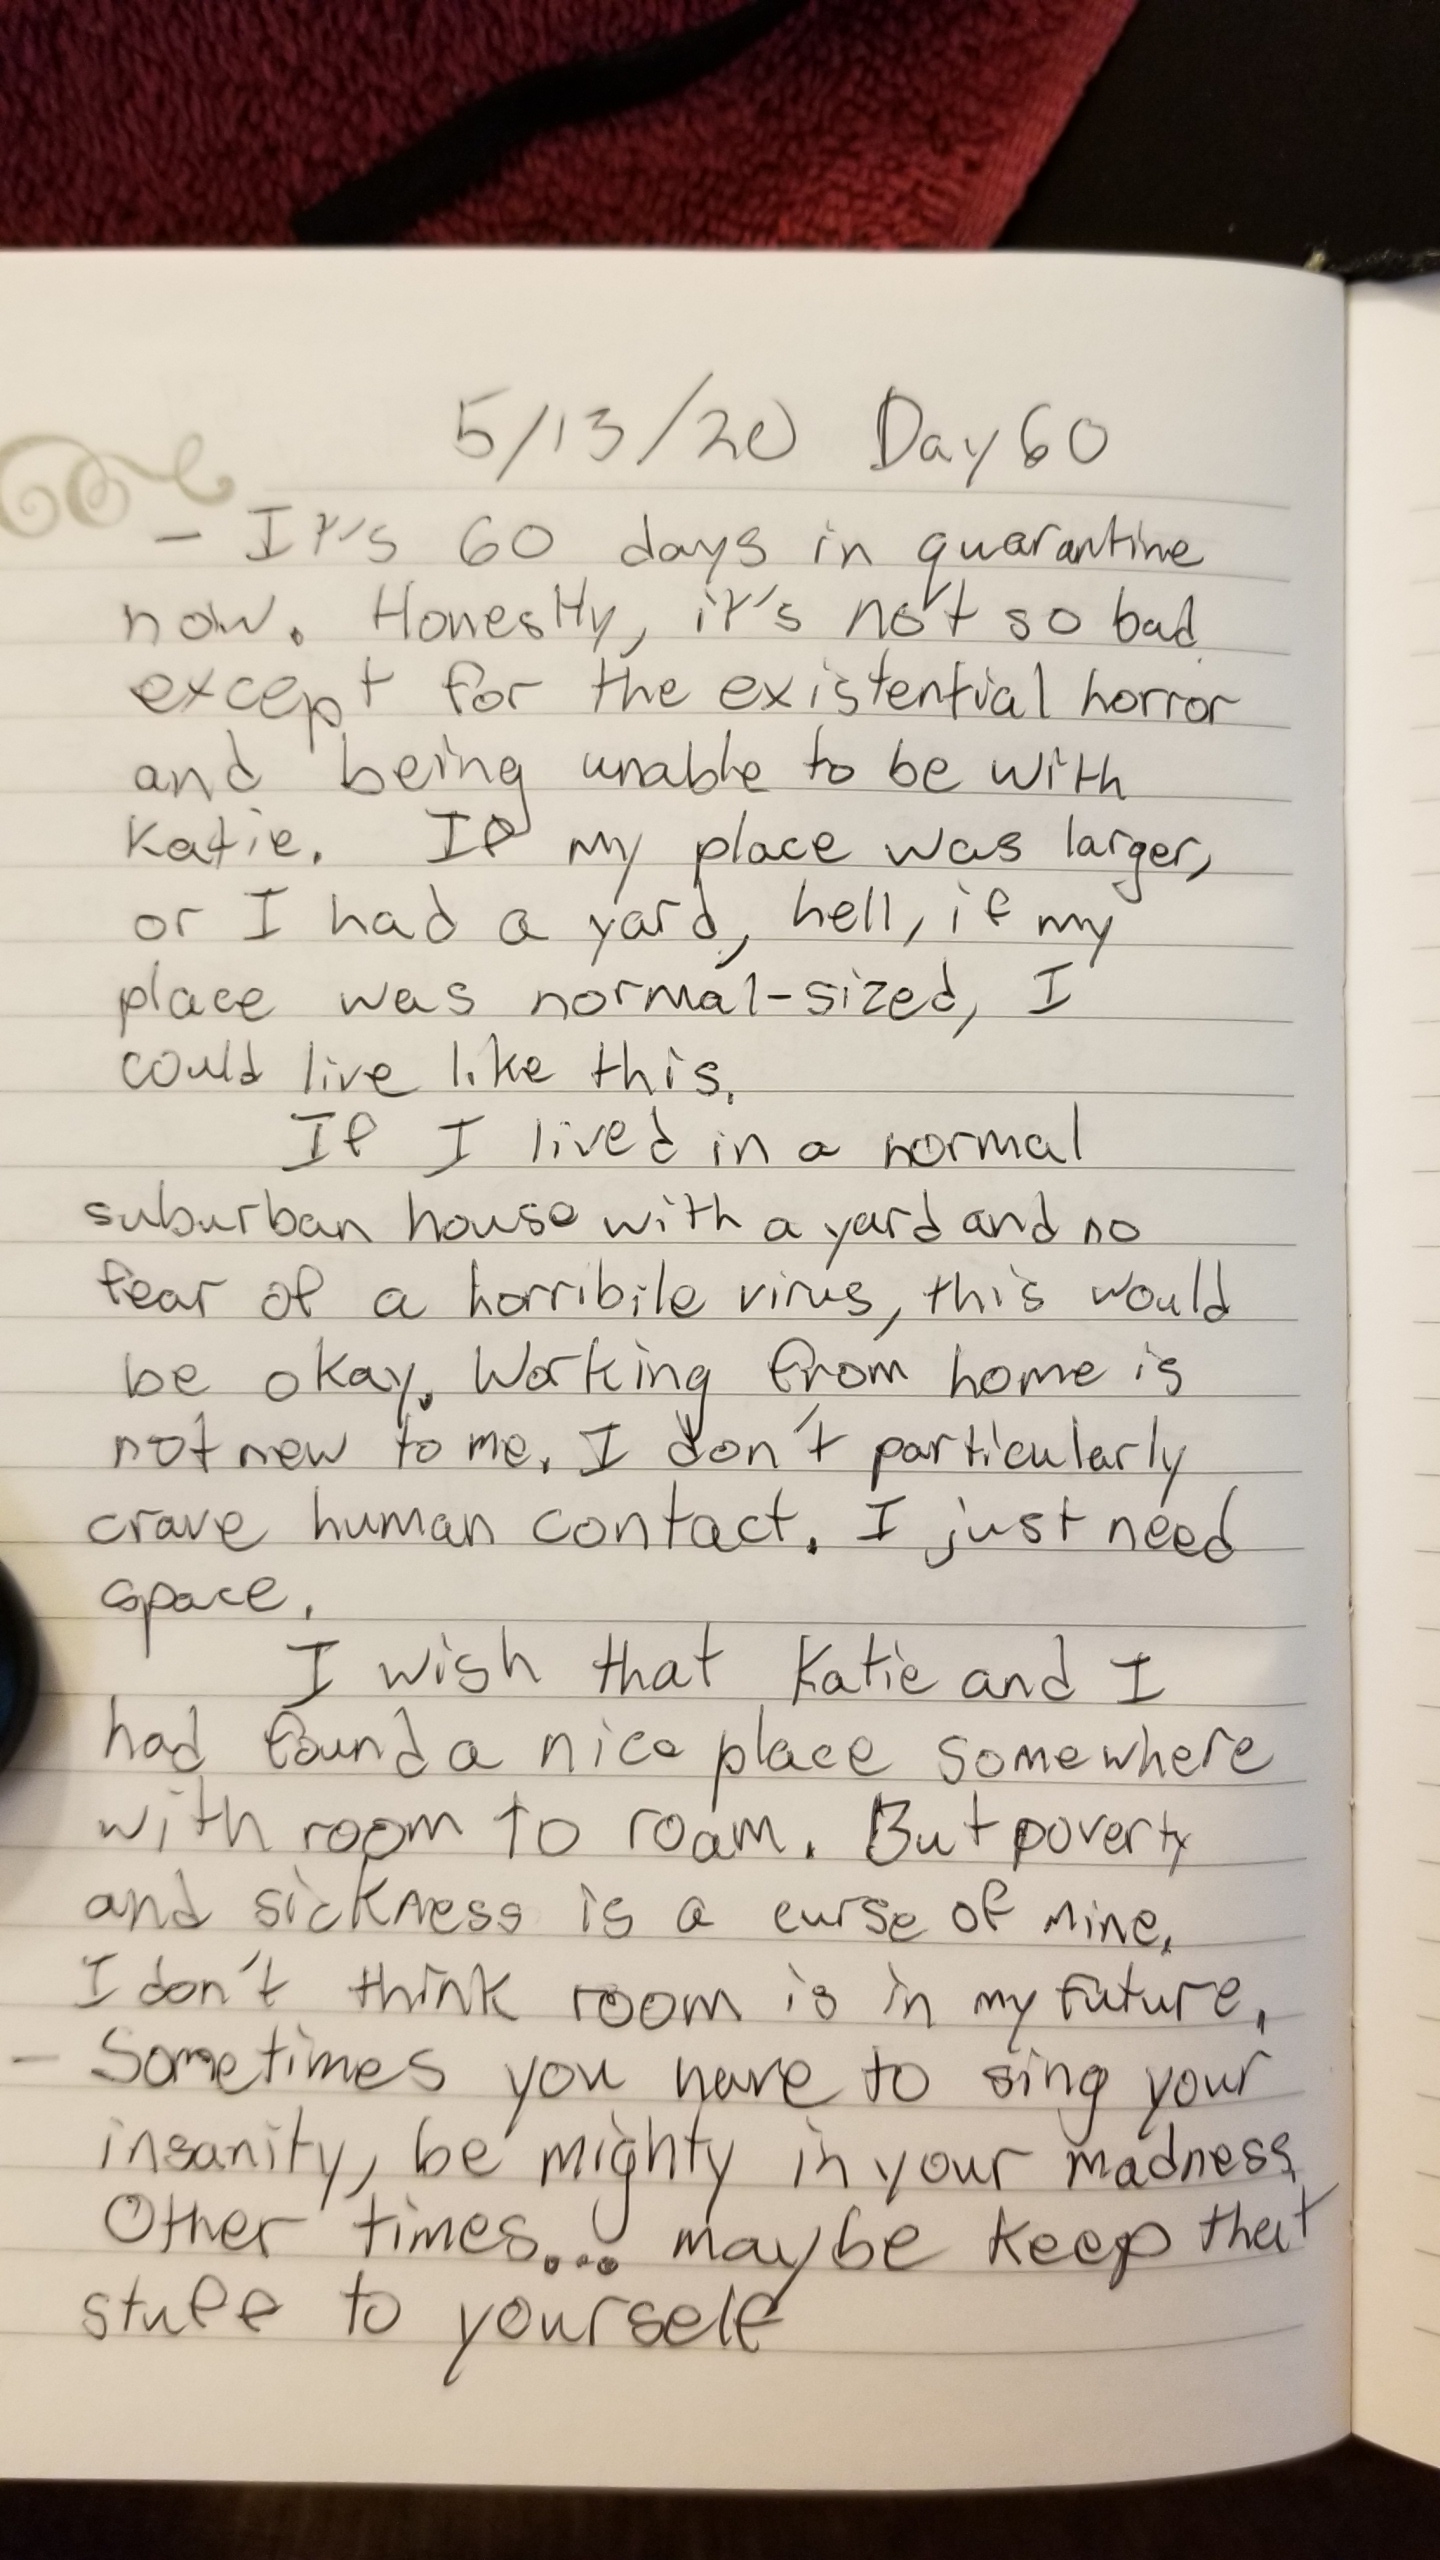 5/13/20 Day 60
- It's 60 days in quarantine
now. Honestly, it's not so bad
except for the existential horror
and being unable to be with
Katie. If my place was larger,
or I had a yard, hell, if my
place was normal-sized, I
could live like this.
If I lived in a normal
suburban house with a yard and no
fear of a horribile virus, this would
be okay. Working from home is
not new to me. I don't particularly
crave human contact. I just need
space.
I wish that Katie and I
had found a nice place somewhere
with room to roam. But poverty
and sickness is a curse of mine.
I don't think room is in my future.
- Sometimes you have to sing your
insanity, be mighty in your madness.
Other times... maybe keep that
stuff to yourself